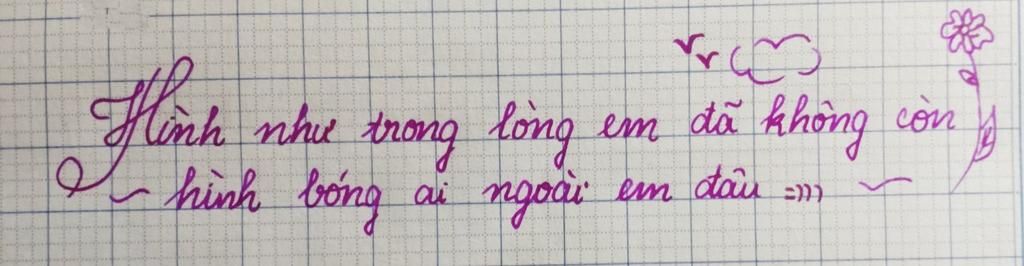 Hình như trong lòng em đã không còn
~ hình bóng ai ngoài em đâu =))) ~